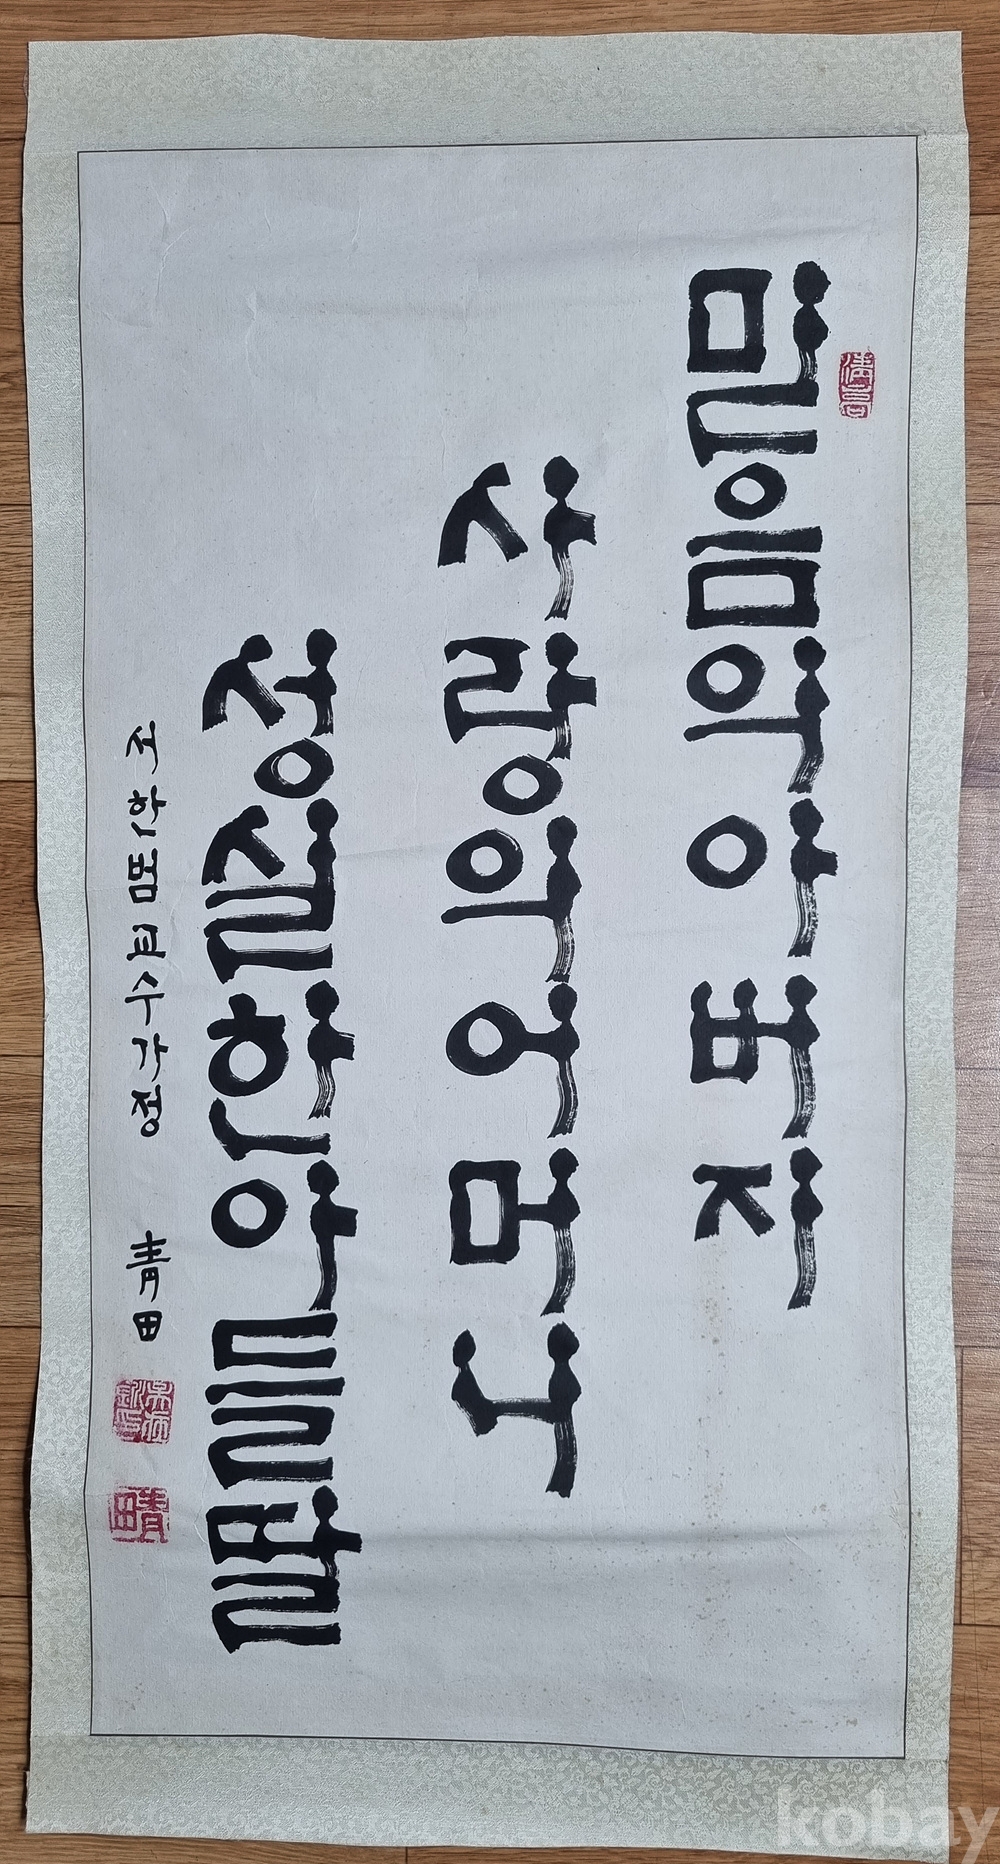 믿음의 아버지
사랑의 어머니
성실한 아들딸
서한범교수가정 靑田
kobay